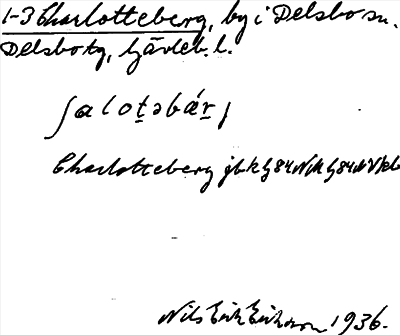 1-3 Charlotteberg, by i Delsbo sn.
Delsbo tg, Gävleb. l.
ʃalot̠əbǽr̠j
Charlotteberg jb
Nils Erik Eriksson 1936.